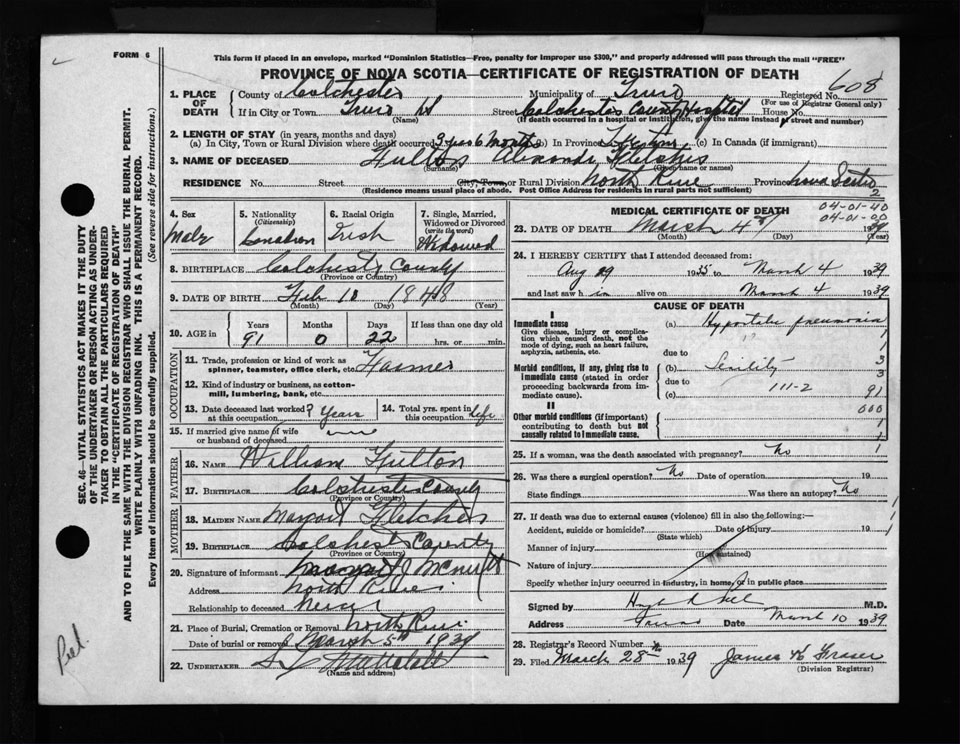 FORM 6
This form if placed in an envelope, marked "Dominion Statistics—Free, penalty for improper use $300," and properly addressed will pass through the mail "FREE"
PROVINCE OF NOVA SCOTIA—CERTIFICATE OF REGISTRATION OF DEATH
608
1. PLACE OF DEATH County of Colchester Municipality of Truro Registered No.
(For use of Registrar General only)
If in City or Town Truro Street Colchester County Hospital House No.
(Name) (If death occurred in a hospital or institution, give the name instead of street and number)
2. LENGTH OF STAY (in years, months and days)
(a) In City, Town or Rural Division where death occurred 3 years 6 months (b) In Province Lifetime (c) In Canada (if immigrant)
3. NAME OF DECEASED Fulton Fletcher
(Surname) (Given name or names)
RESIDENCE No. Street City, Town, or Rural Division North River Province Nova Scotia
(Residence means usual place of abode. Post Office Address for residents in rural parts not sufficient)
2
4. Sex Male
5. Nationality (Citizenship) Canadian
6. Racial Origin Irish
7. Single, Married, Widowed or Divorced (write the word) Widowed
8. BIRTHPLACE Colchester County
(Province or Country)
9. DATE OF BIRTH Feb 1848
(Month) (Day) (Year)
10. AGE in Years Months Days If less than one day old
91 0 22 hrs. or min.
OCCUPATION
11. Trade, profession or kind of work as spinner, teamster, office clerk, etc. Farmer
12. Kind of industry or business, as cotton-mill, lumbering, bank, etc.
13. Date deceased last worked at this occupation ? Years
14. Total yrs. spent in this occupation life
15. If married give name of wife or husband of deceased
FATHER
16. NAME William Fulton
17. BIRTHPLACE Colchester County
(Province or Country)
MOTHER
18. MAIDEN NAME Fletcher
19. BIRTHPLACE Colchester County
(Province or Country)
20. Signature of informant
Address North River
Relationship to deceased
21. Place of Burial, Cremation or Removal North River
Date of burial or removal March 5th 1939
22. UNDERTAKER
(Name and address)
MEDICAL CERTIFICATE OF DEATH
04-01-40
04-01-00
23. DATE OF DEATH March 4th 1939
(Month) (Day) (Year)
24. I HEREBY CERTIFY that I attended deceased from:
Aug 29 1935 to March 4 1939
and last saw him alive on March 4 1939
CAUSE OF DEATH
I
Immediate cause
Give disease, injury or complication which caused death, not the mode of dying, such as heart failure, asphyxia, asthenia, etc.
(a) Hypostatic pneumonia
1
1
due to
Morbid conditions, if any, giving rise to immediate cause (stated in order proceeding backwards from immediate cause).
(b) Senility 3
due to 3
(c) 111-2 91
II
000
Other morbid conditions (if important) contributing to death but not causally related to immediate cause.
1
1
25. If a woman, was the death associated with pregnancy? No 1
26. Was there a surgical operation? No Date of operation 19
State findings Was there an autopsy? No
27. If death was due to external causes (violence) fill in also the following:—
Accident, suicide or homicide? Date of injury 19
(State which)
Manner of injury
(How sustained)
Nature of injury
Specify whether injury occurred in industry, in home, or in public place
Signed by M.D.
Address Truro Date March 10 1939
28. Registrar's Record Number
29. Filed March 28 1939 James Fraser
(Division Registrar)
SEC. 46—VITAL STATISTICS ACT MAKES IT THE DUTY
OF THE UNDERTAKER OR PERSON ACTING AS UNDER-
TAKER TO OBTAIN ALL THE PARTICULARS REQUIRED
IN THE "CERTIFICATE OF REGISTRATION OF DEATH"
AND TO FILE THE SAME WITH THE DIVISION REGISTRAR WHO SHALL ISSUE THE BURIAL PERMIT.
WRITE PLAINLY WITH UNFADING INK. THIS IS A PERMANENT RECORD.
Every item of information should be carefully supplied. (See reverse side for instructions.)
Peel